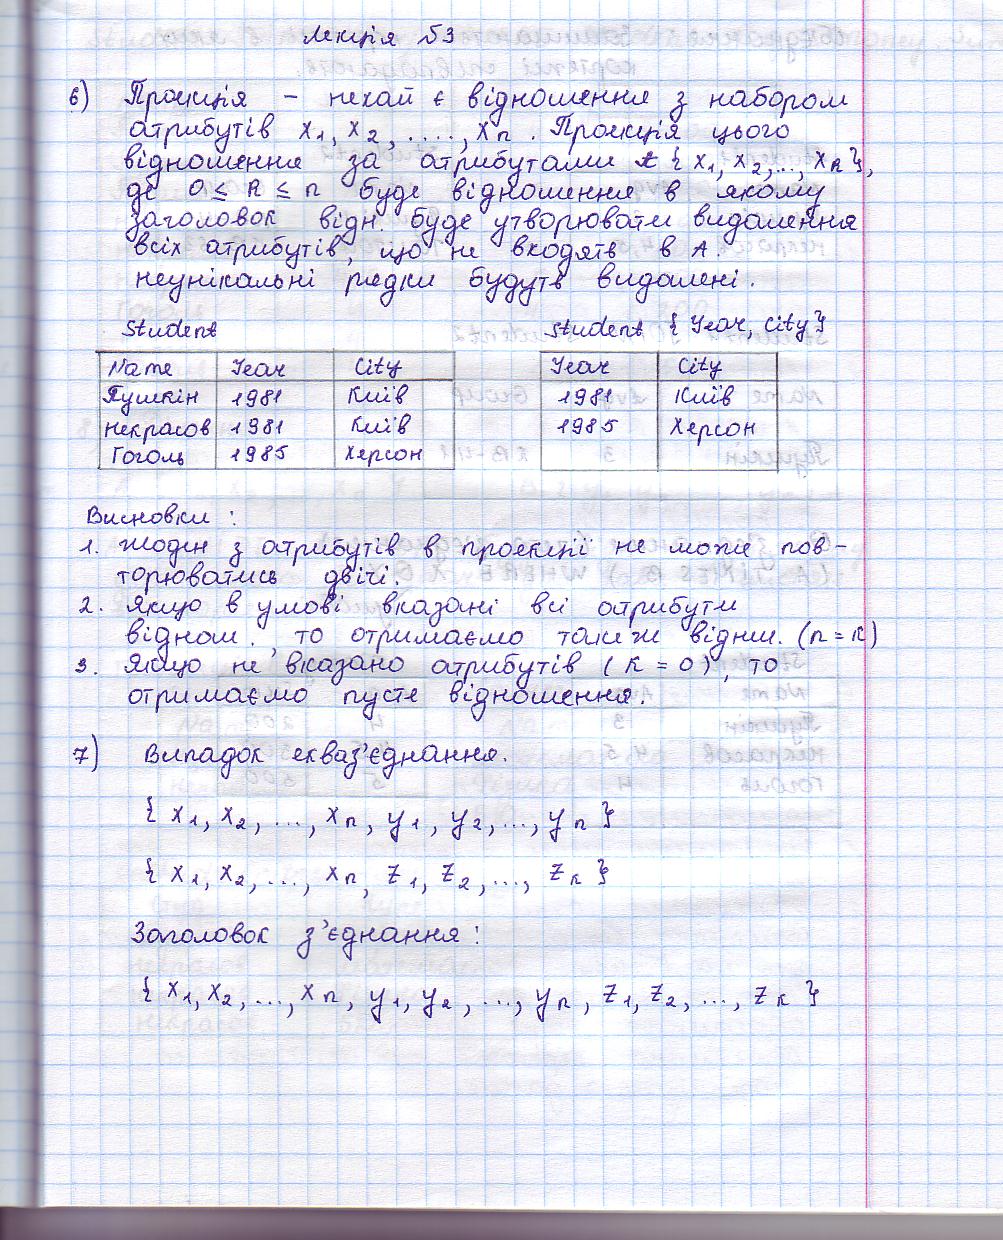 Лекція №3
6) Проекція – нехай є відношення з набором
атрибутів x1, x2, ...., xn. Проекція цього
відношення за атрибутами { x1, x2,..., xk},
де 0 ≤ k ≤ n буде відношення в якому
заголовок відн. буде утворювати видалення
всіх атрибутів, що не входять в A.
неунікальні рядки будуть видалені.
Student Student { Year, City}
Name Year City Year City
Пушкін 1981 Київ 1981 Київ
Некрасов 1981 Київ 1985 Херсон
Гоголь 1985 Херсон
Висновки :
1. жоден з атрибутів в проекції не може пов-
торюватись двічі.
2. Якщо в умові вказані всі атрибути
віднош., то отримаємо тамж віднш. (n = k)
3. Якщо не вказано атрибутів ( k = 0), то
отримаємо пусте відношення.
7) Випадок екваз'єднання.
{ x1, x2, ..., xn, y1, y2, ..., yn }
{ x1, x2, ..., xn, z1, z2, ..., zk }
Заголовок з'єднання :
{ x1, x2, ..., xn, y1, y2, ..., yn, z1, z2, ..., zk }